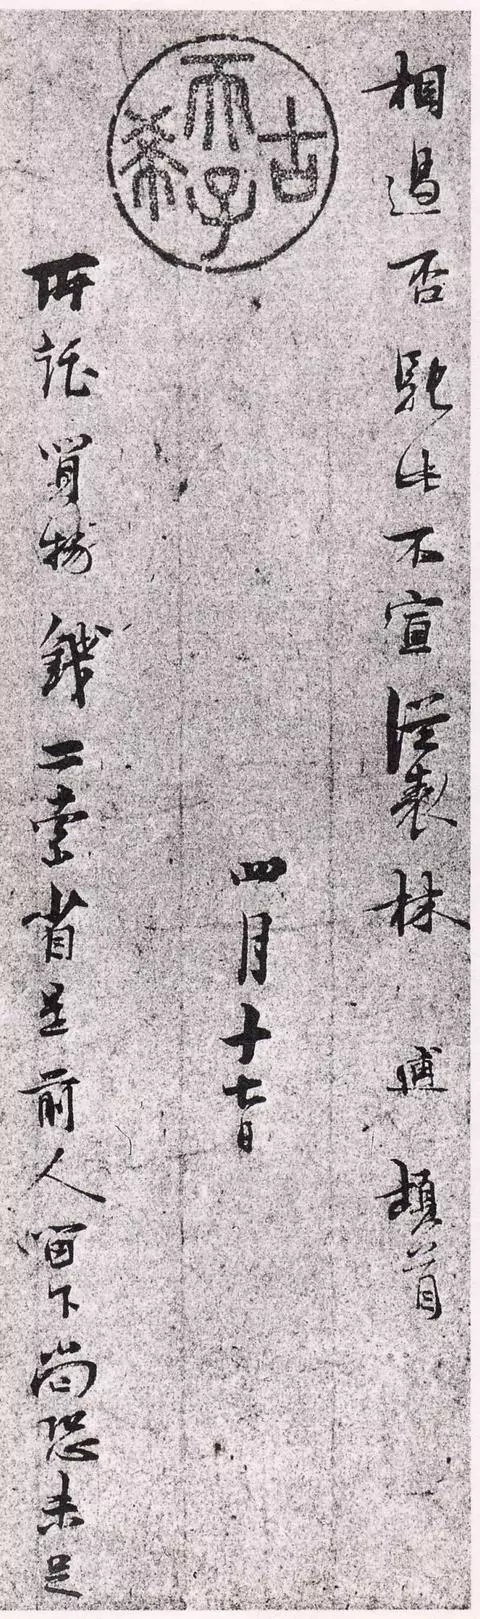 相過否馳此不宣從表林逋頓首
古希天子
四月十七日
所託買物錢二索省是前人留下尚恐未足